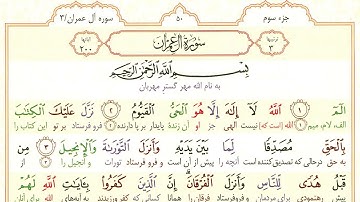 جزء سوم
۵۰
سوره آل عمران/۳
۳
سُورَةُ آلِ عِمرَان
۲۰۰
بِسْمِ اللَّهِ الرَّحْمَٰنِ الرَّحِيمِ
به نام الله مهر گستر مهربان
الٓمٓ ۱ اللَّهُ لَآ إِلَٰهَ إِلَّا هُوَ الْحَيُّ الْقَيُّومُ ۲ نَزَّلَ عَلَيْكَ الْكِتَابَ
الف، لام، میم الله [است که] نیست الهی جز او آن زندهٔ پایدار برپا دارنده فرو فرستاد بر تو این کتاب را
بِالْحَقِّ مُصَدِّقًا لِّمَا بَيْنَ يَدَيْهِ وَأَنزَلَ التَّوْرَاةَ وَالْإِنجِيلَ ۳ مِن
به حق درحالی که تصدیق‌کننده است آنچه را پیش از آن است و فرو فرستاد تورات و انجیل را از
قَبْلُ هُدًى لِّلنَّاسِ وَأَنزَلَ الْفُرْقَانَ إِنَّ الَّذِينَ كَفَرُوا بِآيَاتِ اللَّهِ لَهُمْ
پیش رهنمودی برای مردمان و فرو فرستاد همانا کسانی که کفر ورزیدند به آیه‌های